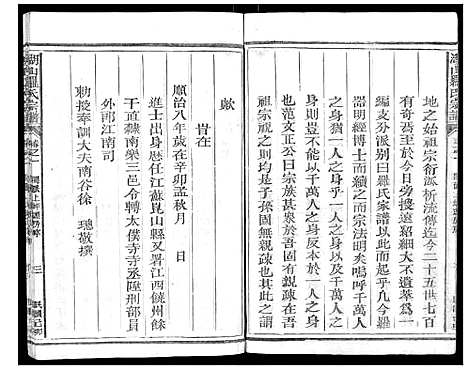 地之始祖宗衍派析流傳迄今二十五世七百
有奇焉至於今日旁搜遠紹細大不遺千萬人
編支分派別曰羅氏家譜以此而起乎凡今羅
器明經博士而續之而宗法明矣嗚呼千萬人
之身祖一人之身乎一人之身以及千萬人之
身則豈不能以千萬人之身反本於一人之身
也范文正公曰宗族甚衆於吾固有親疎在吾
祖宗視之則均是子孫固無親疎也其此之謂
歟
旹在
順治八年歲在辛卯孟秋月　日
進士出身歷任江蘇崑山縣又署江西饒州餘
干直隸南樂三邑令轉太僕寺寺丞陞刑部員
外郎江南司
勅授奉訓大夫南谷徐　璁敬撰
湖山羅氏宗譜